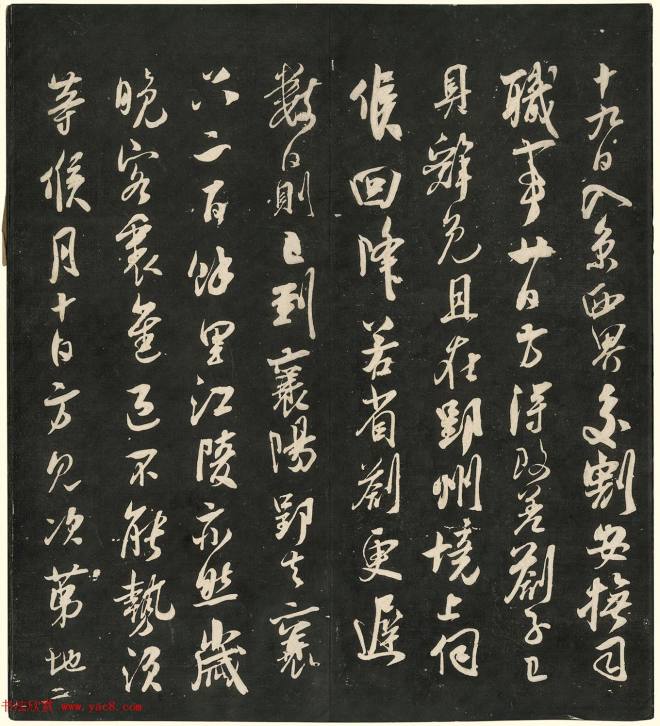 十九日入京西界交割安撫司
職事廿日方得改差劄子已
具辭免且在郢州境上伺
候回降若省劄更遲
數日則已到襄陽郢去襄
只二百餘里江陵亦然歲
晚客裏進退不能勢須
等候月十日方見次第地
书法欣赏 www.yac8.com